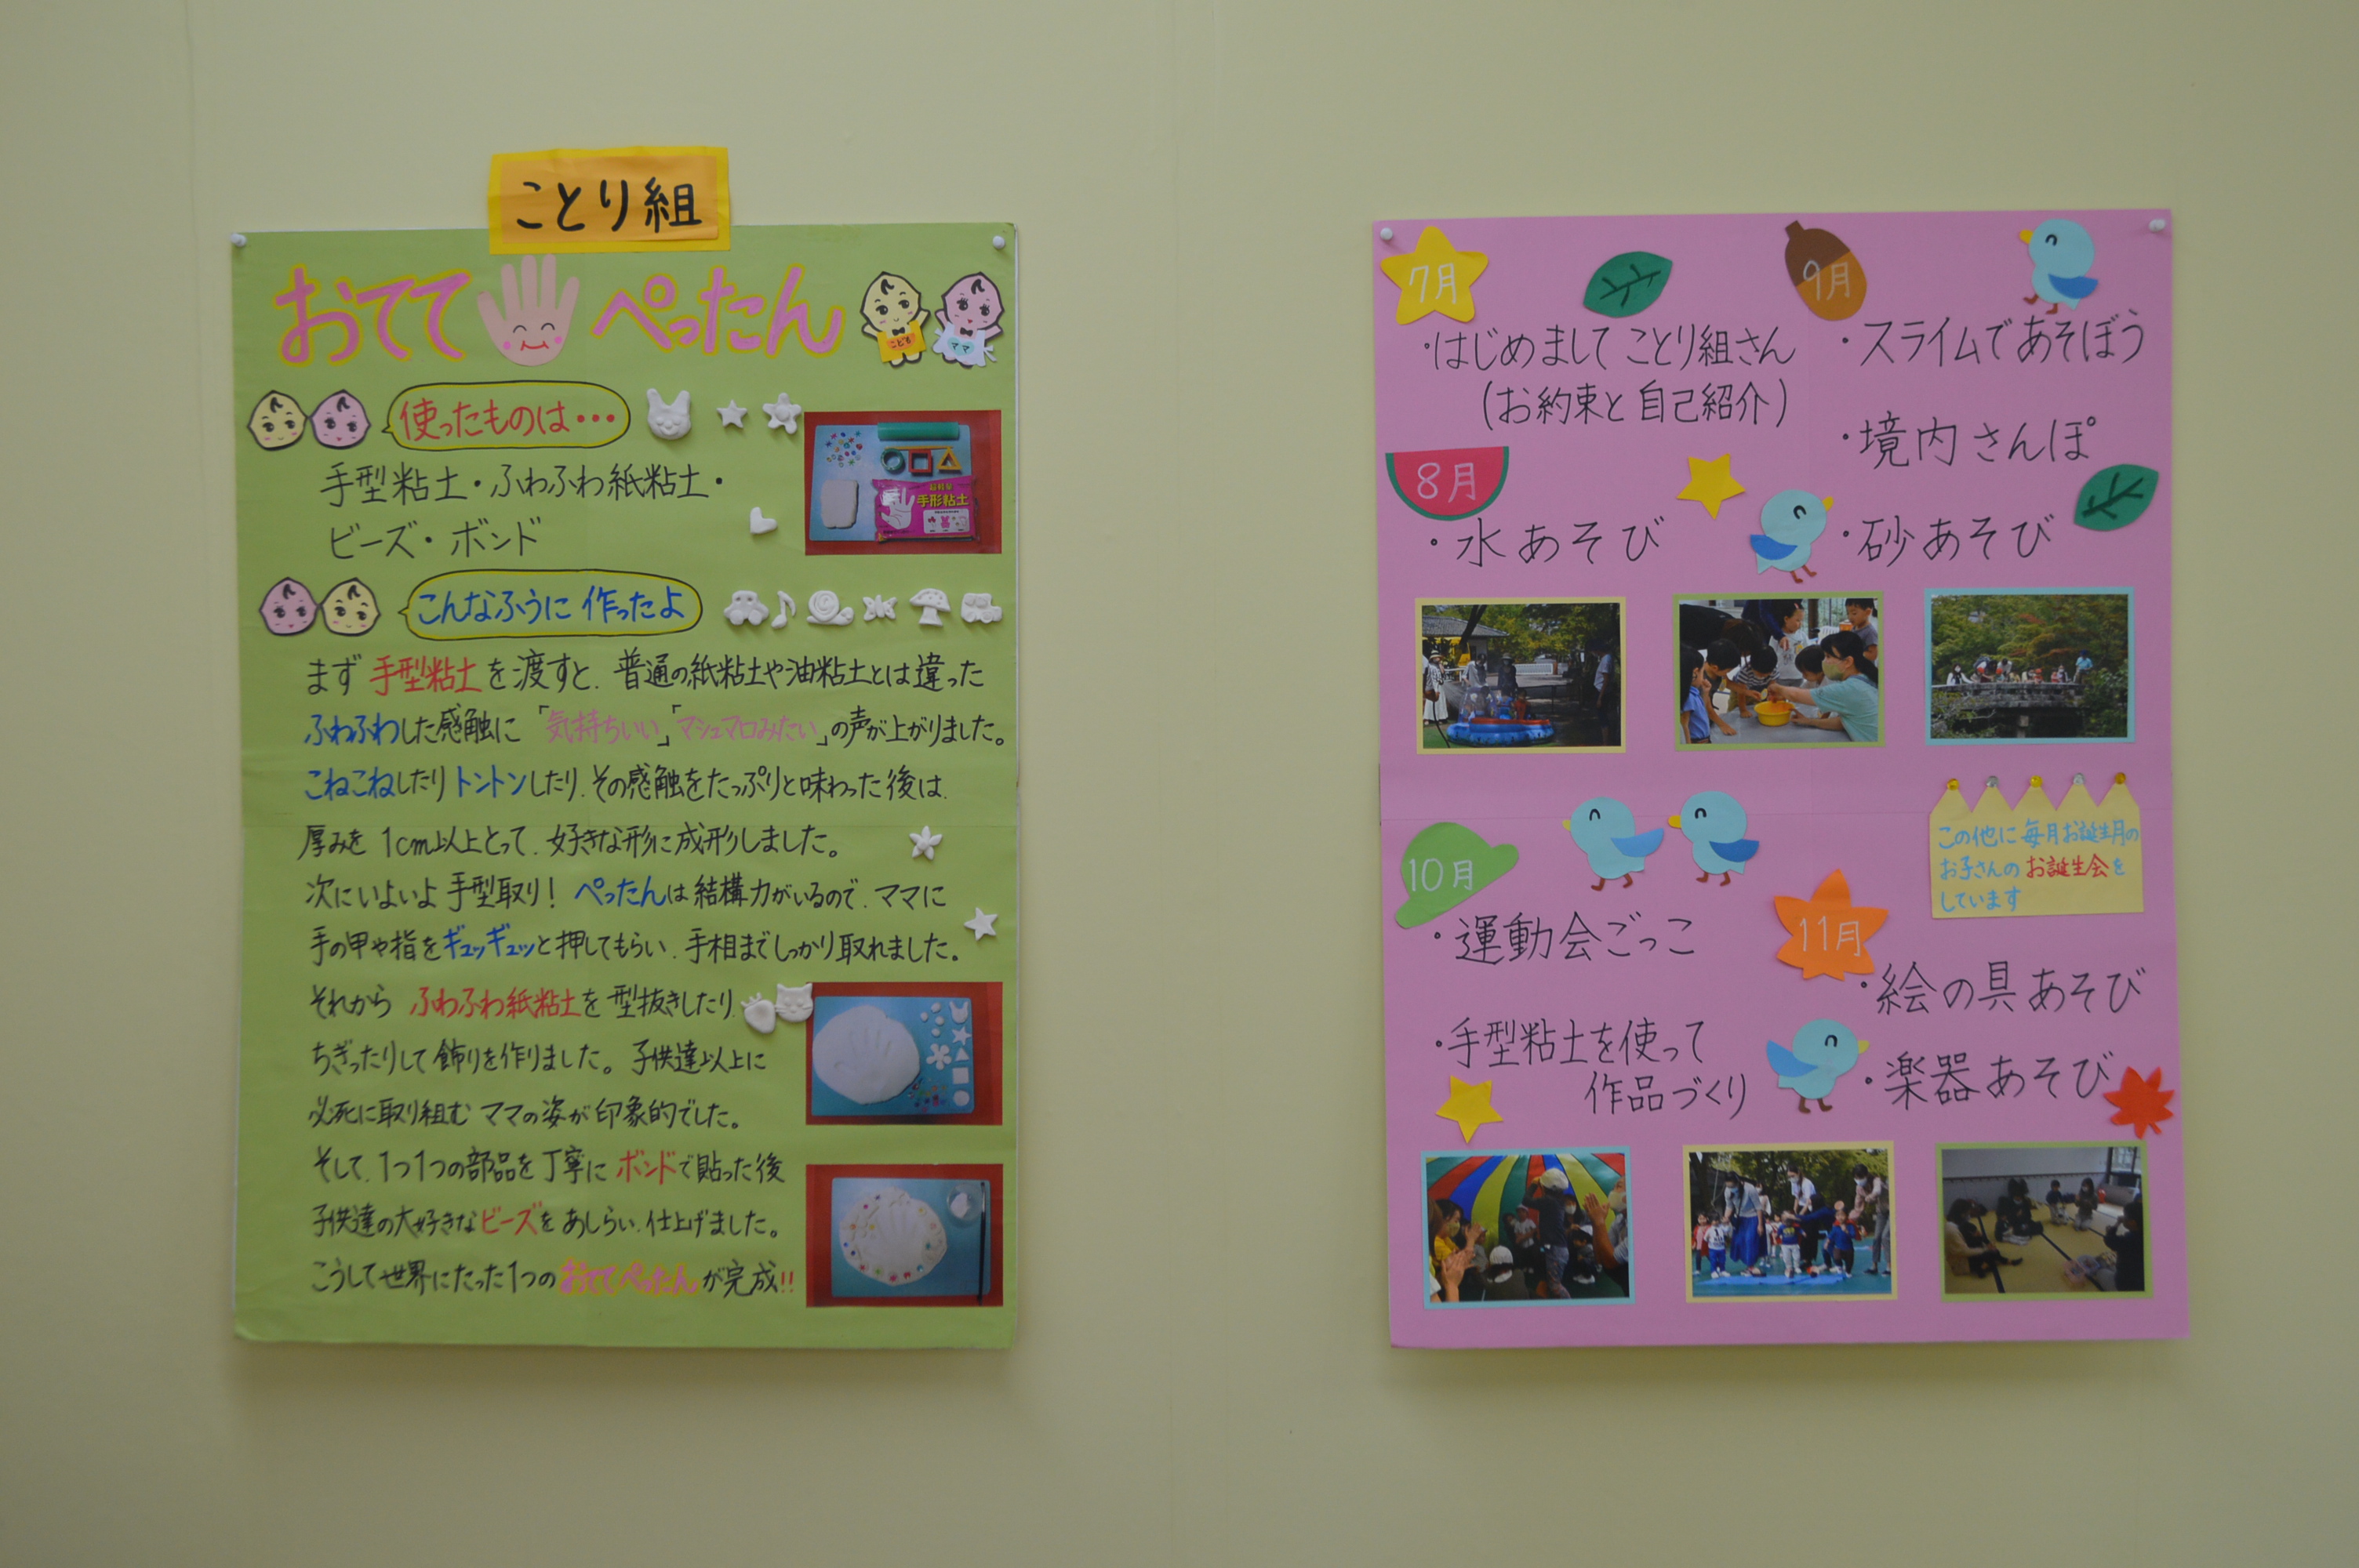 ことり組
おてて ぺったん
こども
ママ
使ったものは…
手型粘土・ふわふわ紙粘土・
ビーズ・ボンド
手形粘土
こんなふうに作ったよ
まず手型粘土を渡すと、普通の紙粘土や油粘土とは違った
ふわふわした感触に「気持ちいい」「マシュマロみたい」の声が上がりました。
こねこねしたりトントンしたり、その感触をたっぷりと味わった後は、
厚みを1cm以上とって、好きな形に成形しました。
次にいよいよ手型取り!ぺったんは結構力がいるので、ママに
手の甲や指をギュッギュッと押してもらい、手相までしっかり取れました。
それから ふわふわ紙粘土を型抜きしたり、
ちぎったりして飾りを作りました。子供達以上に
必死に取り組むママの姿が印象的でした。
そして、1つ1つの部品を丁寧にボンドで貼った後
子供達の大好きなビーズをあしらい、仕上げました。
こうして世界にたった1つのおててぺったんが完成!!
7月
・はじめまして ことり組さん
(お約束と自己紹介)
8月
・水あそび
9月
・スライムであそぼう
・境内さんぽ
・砂あそび
10月
・運動会ごっこ
・手型粘土を使って
作品づくり
この他に毎月お誕生月の
お子さんのお誕生会を
しています
11月
・絵の具あそび
・楽器あそび